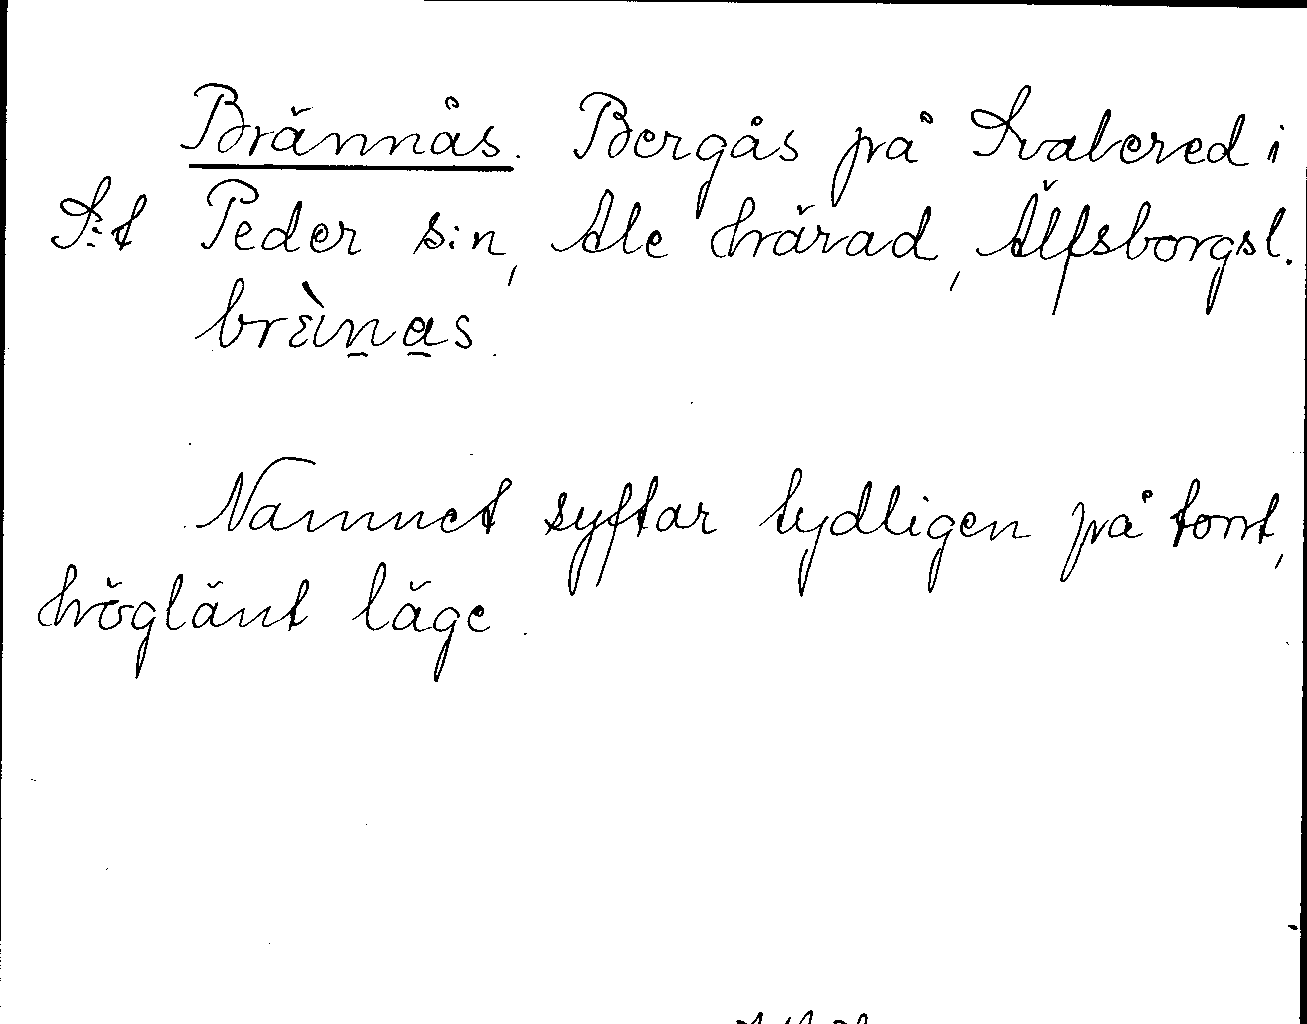 Brännås. Bergås på Svalered i
S:t Peder s:n, Ale härad, Älfsborgsl.
Namnet syftar tydligen på torrt,
höglänt läge.